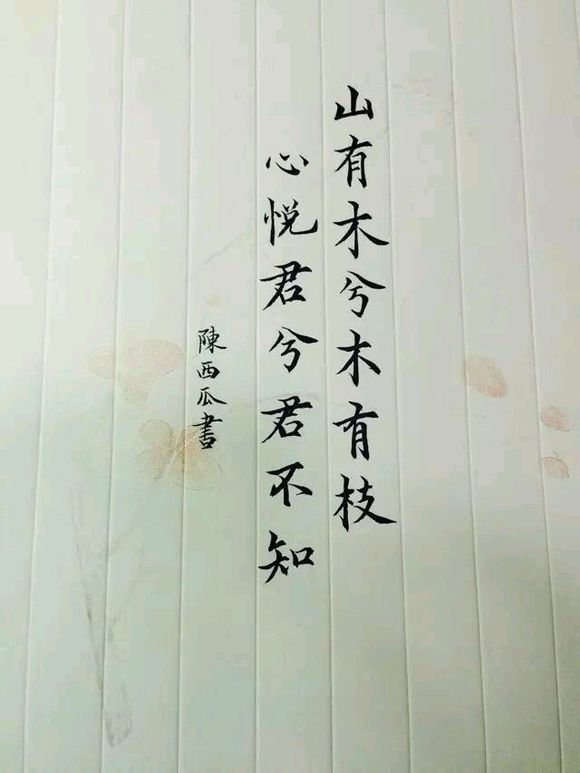 山有木兮木有枝
心悦君兮君不知
陳西瓜書